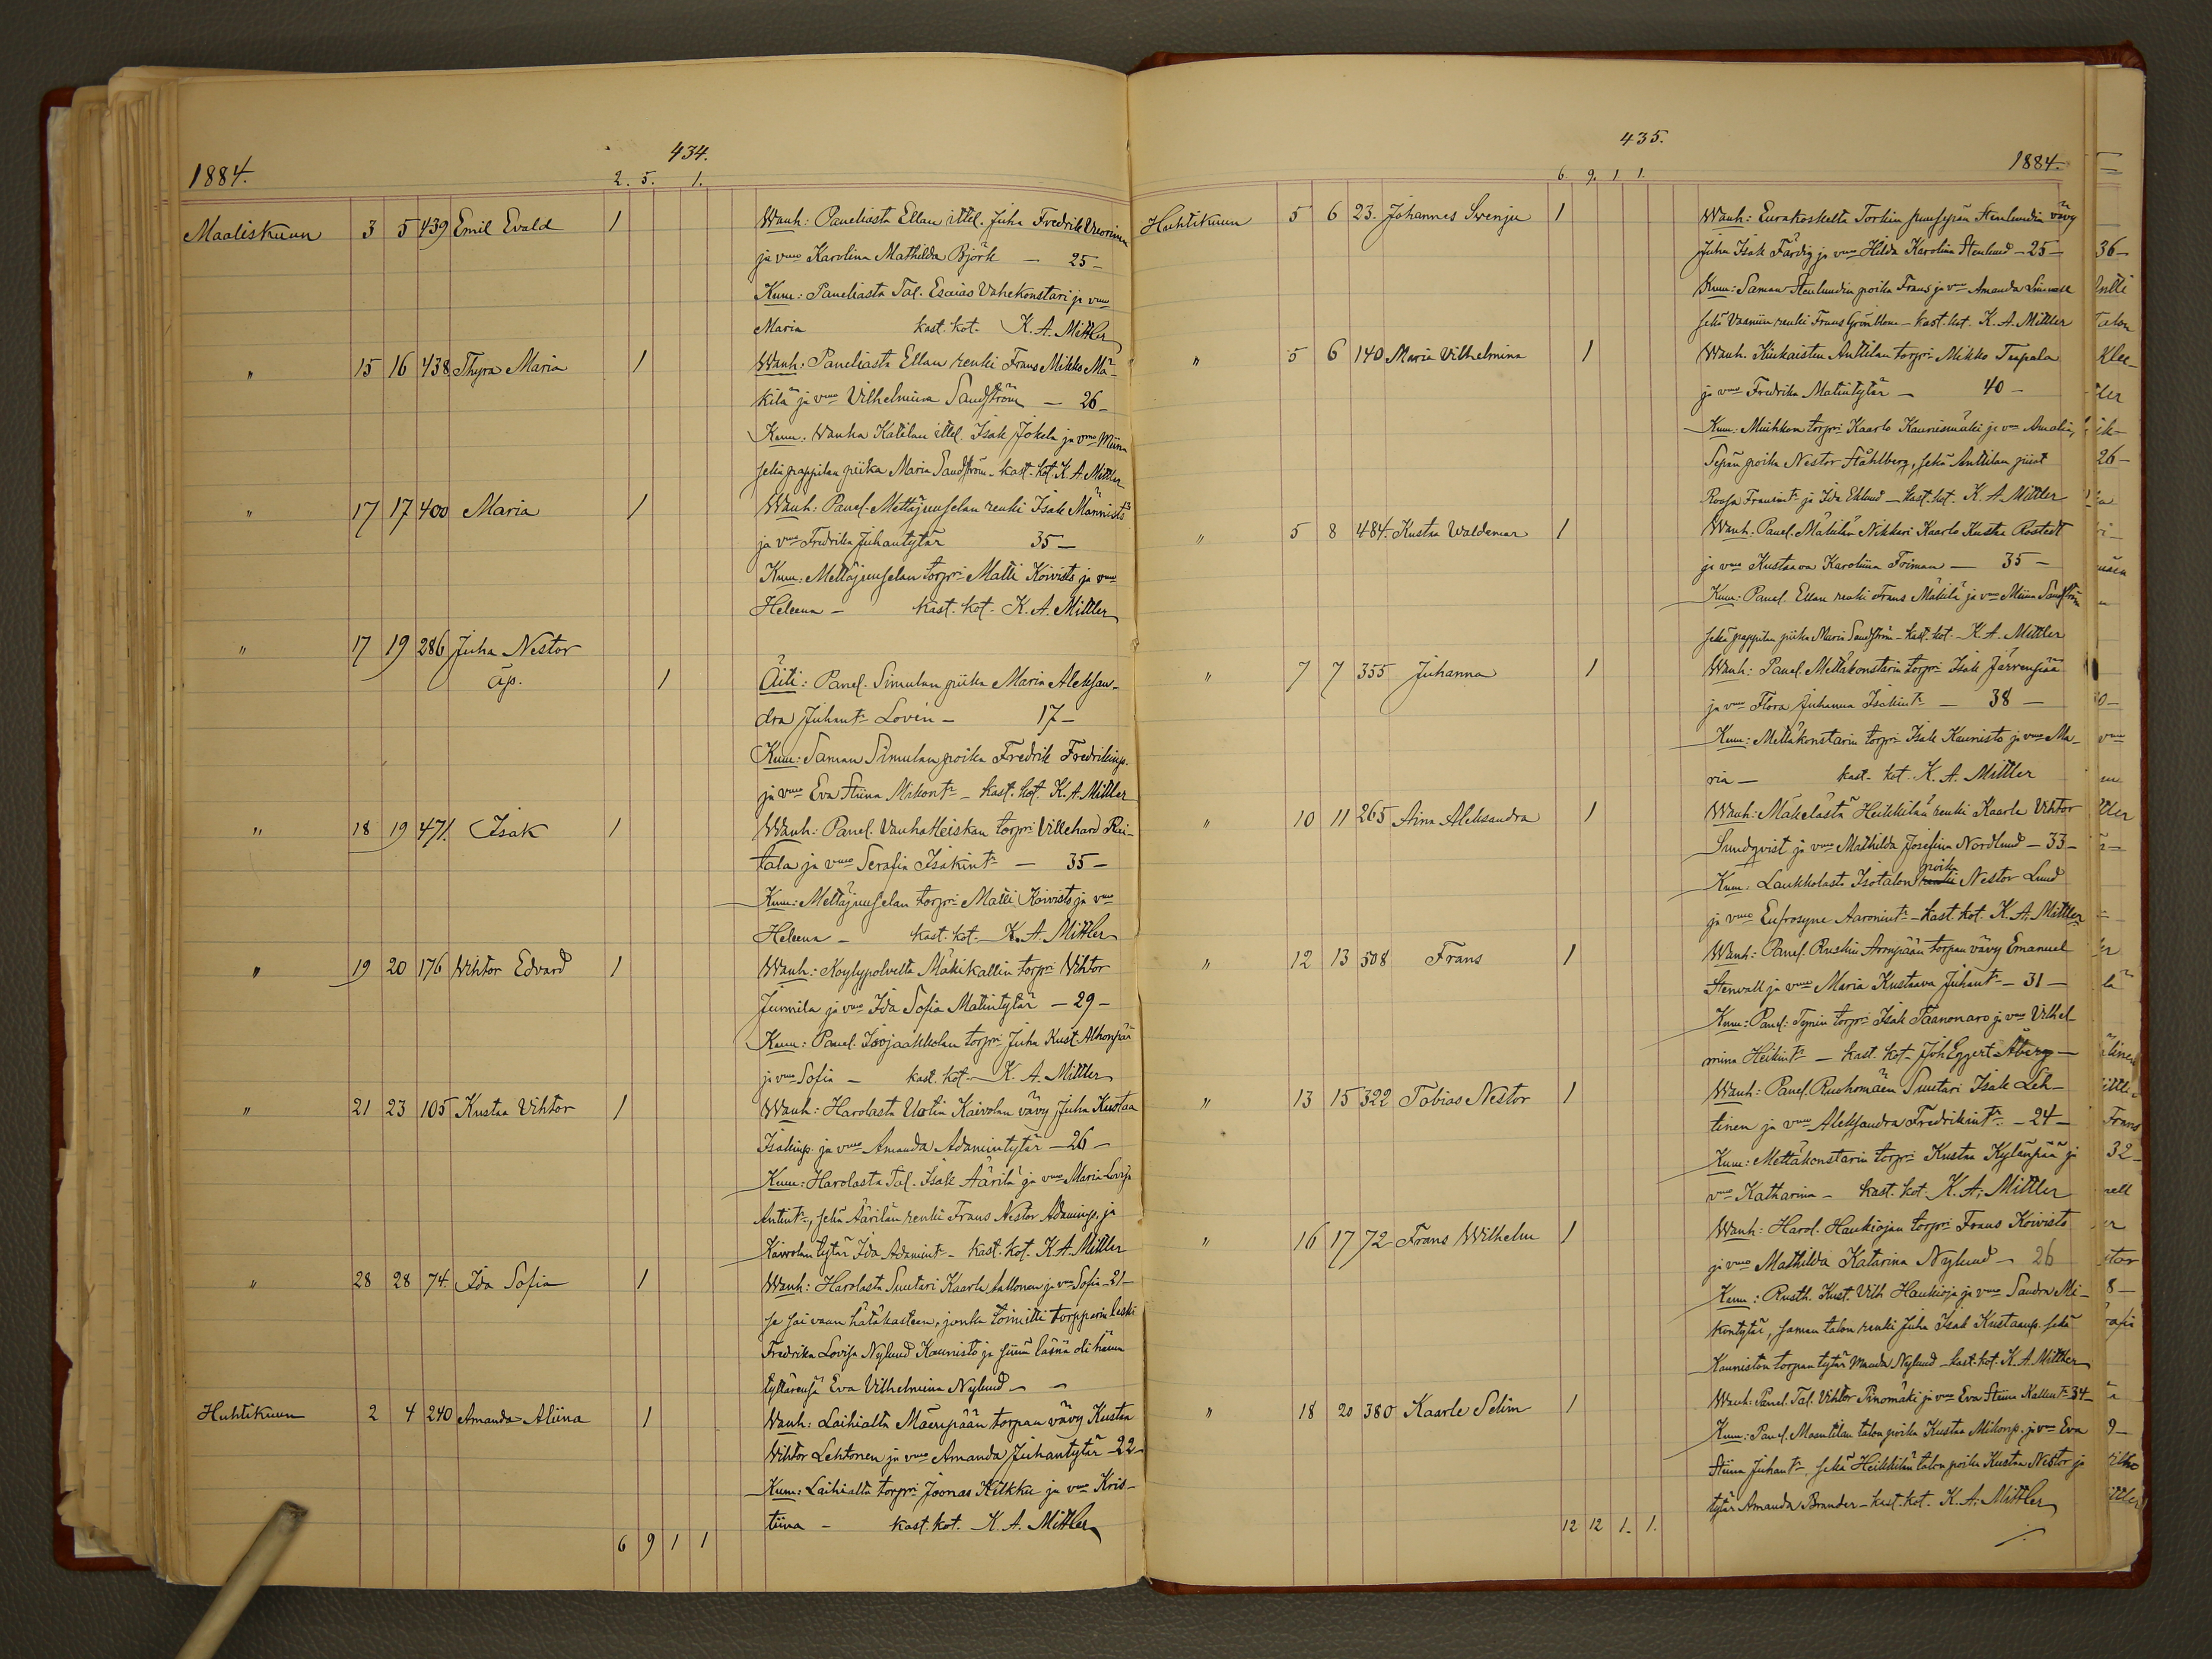 434.
1884.
2. 5. 1.
Maaliskuun 3 5 439 Emil Evald 1 Wanh: Paneliasta Ellan ittel. Juha Fredrik Vuorinen
ja vmo Karolina Mathilda Björk — 25 —
Kum: Paneliasta Tal. Esaias Vahekonstari ja vmo
Maria kast. kot. K. A. Mittler
" 15 16 438 Thyra Maria 1 Wanh: Paneliasta Ellan renki Frans Mikko Mä-
kilä ja vmo Vilhelmiina Sandström — 26 —
Kum: Wanha Katilan ittel. Isak Jokela ja vmo Miina
sekä pappilan piika Maria Sandström — kast. kot. K. A. Mittler
" 17 17 400 Maria 1 Wanh: Panel. Mettäjuuselan renki Isak Männistö
ja vmo Fredrika Juhantytär 35 —
Kum: Mettäjuuselan torpri Matti Koivisto ja vmo
Heleena — kast. kot. K. A. Mittler
" 17 19 286 Juha Nestor
äp. 1 Äiti: Panel. Simulan piika Maria Aleksan-
dra Juhantr Lovén — 17 —
Kum: Saman Simulan poika Fredrik Fredrikinp.
ja vmo Eva Stiina Mikontr — kast. kot. K. A. Mittler
" 18 19 471. Isak 1 Wanh: Panel. Vanha Heiskan torpri Villehard Rai-
tala ja vmo Serafia Isakintr — 35 —
Kum: Mettäjuuselan torpri Matti Koivisto ja vmo
Heleena — kast. kot. K. A. Mittler
" 19 20 176 Vihtor Edvard 1 Wanh: Köylypolvelta Mäkikallin torpri Vihtor
Juumila ja vmo Ida Sofia Matintytär — 29 —
Kum: Panel. Isojaakkolan torpri Juha Kust. Alhonpää
ja vmo Sofia — kast. kot. K. A. Mittler
" 21 23 105 Kustaa Vihtor 1 Wanh: Harolasta Uotin Kaivolan vävy Juha Kustaa
Isakinp. ja vmo Amanda Adamintytär — 26 —
Kum: Harolasta Tal. Isak Äärilä ja vmo Maria Lovisa
Antintr, sekä Äärilän renki Frans Nestor Adaminp. ja
Kaivolan tytär Ida Adamintr — kast. kot. K. A. Mittler
" 28 28 74. Ida Sofia 1 Wanh: Harolasta Suutari Kaarle Aaltonen ja vmo Sofia — 21 —
se sai vaan hätäkasteen, jonka toimitti torpparin leski
Fredrika Lovisa Nylund Kaunisto ja siinä läsnä oli hänen
tyttärensä Eva Vilhelmiina Nylund — —
Huhtikuun 2 4 240 Amanda Aliina 1 Wanh: Laihialta Mäenpään torpan vävy Kustaa
Vihtor Lehtonen ja vmo Amanda Juhantytär — 22 —
Kum: Laihialta torpri Joonas Kilkku ja vmo Kris-
tiina — kast. kot. K. A. Mittler
6 9 1 1
435.
1884.
6. 9. 1. 1.
Huhtikuun 5 6 23. Johannes Svenju 1 Wanh: Eurakoskelta Torkin puusepän Stenlundin vävy
Juha Isak Färdig ja vmo Hilda Karolina Stenlund — 25 —
Kum: Saman Stenlundin poika Frans ja vmo Amanda
sekä Vaaniin renki Frans Grönblom — kast. kot. K. A. Mittler
" 5 6 140 Maria Vilhelmina 1 Wanh. Kiukaisten Anttilan torpri Mikko Tupala
ja vmo Fredrika Matintytär — 40 —
Kum: Muikkon torpri Kaarlo Kaunismäki ja vmo Amalia,
Sepän poika Nestor Ståhlberg, sekä Anttilan piiat
Roosa Fransintr ja Ida Eklund — kast. kot. K. A. Mittler
" 5 8 484. Kustaa Waldemar 1 Wanh. Panel. Mäkilän Nikkari Kaarlo Kustaa Rostedt
ja vmo Kustaava Karoliina Friman — 35 —
Kum: Panel. Ellan renki Frans Mäkilä ja vmo Miina Sandström
sekä pappilan piika Maria Sandström — kast. kot. K. A. Mittler
" 7 7 355 Juhanna 1 Wanh: Panel. Mettäkonstarin torpri Isak Järvenpää
ja vmo Flora Juhanna Isakintr — 38 —
Kum: Mettäkonstarin torpri Isak Kaunisto ja vmo Ma-
ria — kast. kot. K. A. Mittler
" 10 11 265 Aina Aleksandra 1 Wanh: Mäkelästä Heikkilän renki Kaarle Vihtor
Sundqvist ja vmo Mathilda Josefina Nordlund — 33 —
Kum: Laukkolasta Isotalon renki poika Nestor Lund
ja vmo Eufrosyne Aaronintr — kast. kot. K. A. Mittler
" 12 13 508 Frans 1 Wanh: Panel. Ruskin Aronpään torpan vävy Emanuel
Stenvall ja vmo Maria Kustaava Juhantr — 31 —
Kum: Panel. Tynin torpri Isak Taanonaro ja vmo Vilhel-
mina Heikintr — kast. kot. Joh Eggert Åberg —
" 13 15 322 Tobias Nestor 1 Wanh: Panel. Ruohomäen Suutari Isak Leh-
tinen ja vmo Aleksandra Fredrikintr — 24 —
Kum: Mettäkonstarin torpri Kustaa Kylänpää ja
vmo Katharina — kast. kot. K. A. Mittler
" 16 17 72 Frans Wilhelm 1 Wanh: Harol. Haukiojan torpri Frans Koivisto
ja vmo Mathilda Katarina Nylund — 26
Kum: Rusth. Kust. Vilh Haukioja ja vmo Sandra Mi-
kontytär, saman talon renki Juha Isak Kustaanp. sekä
Kauniston torpan tytär Maada Nylund — kast. kot. K. A. Mittler
" 18 20 380 Kaarle Selim 1 Wanh: Panel. Tal. Vihtor Pinomäki ja vmo Eva Stiina Kallentr 34 —
Kum: Panel. Maantilan talon poika Kustaa Mikonp. ja vmo Eva
Stiina Juhantr, sekä Heikkilän talon poika Kustaa Nestor ja
tytär Amanda Brander — kast. kot. K. A. Mittler
12 12 1. 1.